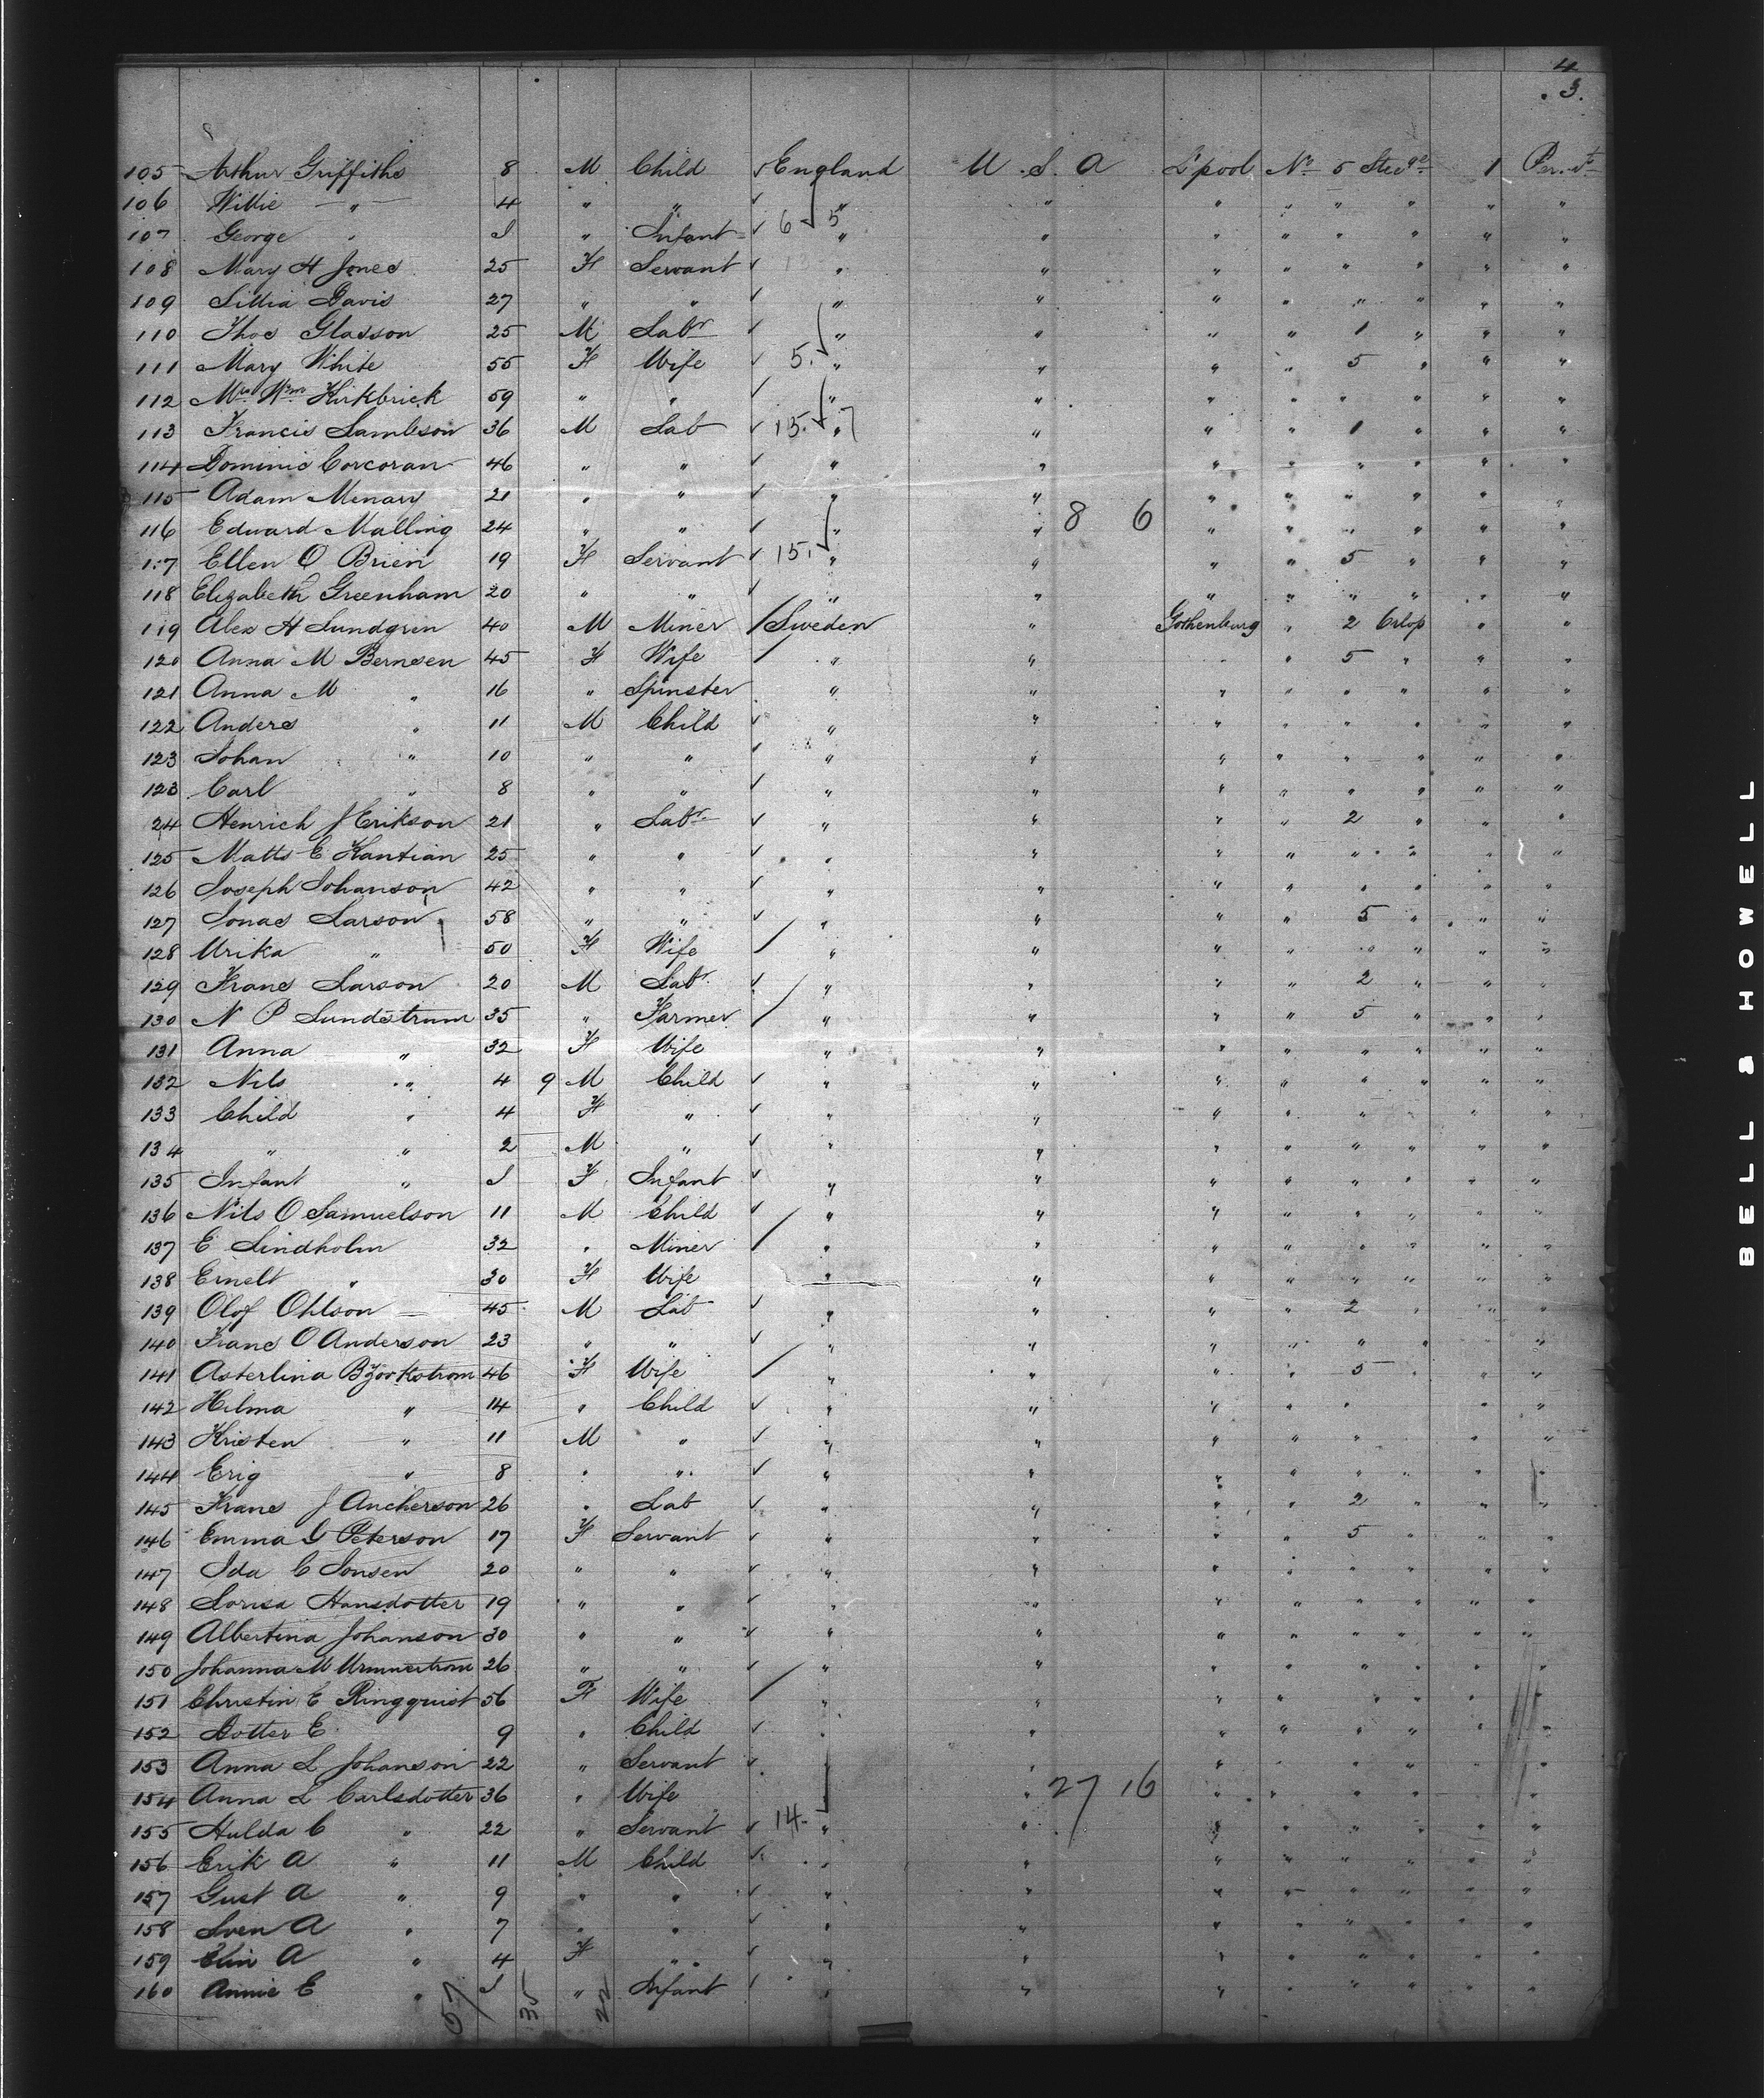 4
3.
105 Arthur Griffiths 8 M Child England U.S.A L'pool No 5 Steege 1 Per. nt
106 Willie " 4 " " " " " " " " " "
107 George " I " Infant 6 5 " " " " " " " "
108 Mary H Jones 25 F Servant " " " " " " " "
109 Lillia Davis 27 " " " " " " " " " "
110 Thos Glasson 25 M Labr " " " " 1 " " "
111 Mary White 55 F Wife 5. " " " " 5 " " "
112 Mrs Wm Kirkbrick 59 " " " " " " " " " "
113 Francis Lambson 36 M Lab 15. 7 " " " " 1 " " "
114 Dominic Corcoran 46 " " " " " " " " " "
115 Adam Menary 21 " " " " " " " " " "
116 Edward Malling 24 " " " " 8 6 " " " " " "
117 Ellen O Brien 19 F Servant 15. " " " " 5 " " "
118 Elizabeth Greenham 20 " " " " " " " " " "
119 Alex H Lundgren 40 M Miner Sweden " Gothenburg " 2 Orlop " "
120 Anna M Bernsen 45 F Wife " " " " 5 " " "
121 Anna M " 16 " Spinster " " " " " " " "
122 Anders " 11 M Child " " " " " " " "
123 Johan " 10 " " " " " " " " " "
123 Carl " 8 " " " " " " " " " "
24 Henrich J Erikson 21 " Labr " " " " 2 " " "
125 Matts E Kantian 25 " " " " " " " " " "
126 Joseph Johanson 42 " " " " " " " " " "
127 Jonas Larson 58 " " " " " " 5 " " "
128 Urika " 50 F Wife " " " " " " " "
129 Frans Larson 20 M Labr " " " " 2 " " "
130 N P Lundstrum 35 " Farmer " " " " 5 " " "
131 Anna " 32 F Wife " " " " " " " "
132 Nils " 4 9 M Child " " " " " " " "
133 Child " 4 F " " " " " " " " "
134 " " 2 M " " " " " " " " "
135 Infant " I F Infant " " " " " " " "
136 Nils O Samuelson 11 M Child " " " " " " " "
137 E Lindholm 32 " Miner " " " " " " " "
138 Ernelt " 30 F Wife " " " " " " " "
139 Olof Ohlson 45 M Lab " " " " 2 " " "
140 Frans O Anderson 23 " " " " " " " " " "
141 Asterlina Bjorkstrom 46 F Wife " " " " 5 " " "
142 Hilma " 14 " Child " " " " " " " "
143 Kristen " 11 M " " " " " " " " "
144 Erig " 8 " " " " " " " " " "
145 Frans J Ancherson 26 " Lab " " " " 2 " " "
146 Emma G Peterson 17 F Servant " " " " 5 " " "
147 Ida C Jonsen 20 " " " " " " " " " "
148 Lorisa Hansdotter 19 " " " " " " " " " "
149 Albertina Johanson 30 " " " " " " " " " "
150 Johanna M 26 " " " " " " " " " "
151 Christin E Ringquist 56 F Wife " " " " " " " "
152 Dotter E 9 " Child " " " " " " " "
153 Anna L Johanson 22 " Servant " " " " " " " "
154 Anna L Carlsdotter 36 " Wife " 27 16 " " " " " "
155 Hulda C " 22 " Servant 14. " " " " " " " "
156 Erik A " 11 M Child " " " " " " " "
157 Gust A " 9 " " " " " " " " " "
158 Sven A " 7 " " " " " " " " " "
159 Elin A " 4 F " " " " " " " " "
160 Annie E " I " Infant " " " " " " " "
57 35 22
BELL & HOWELL